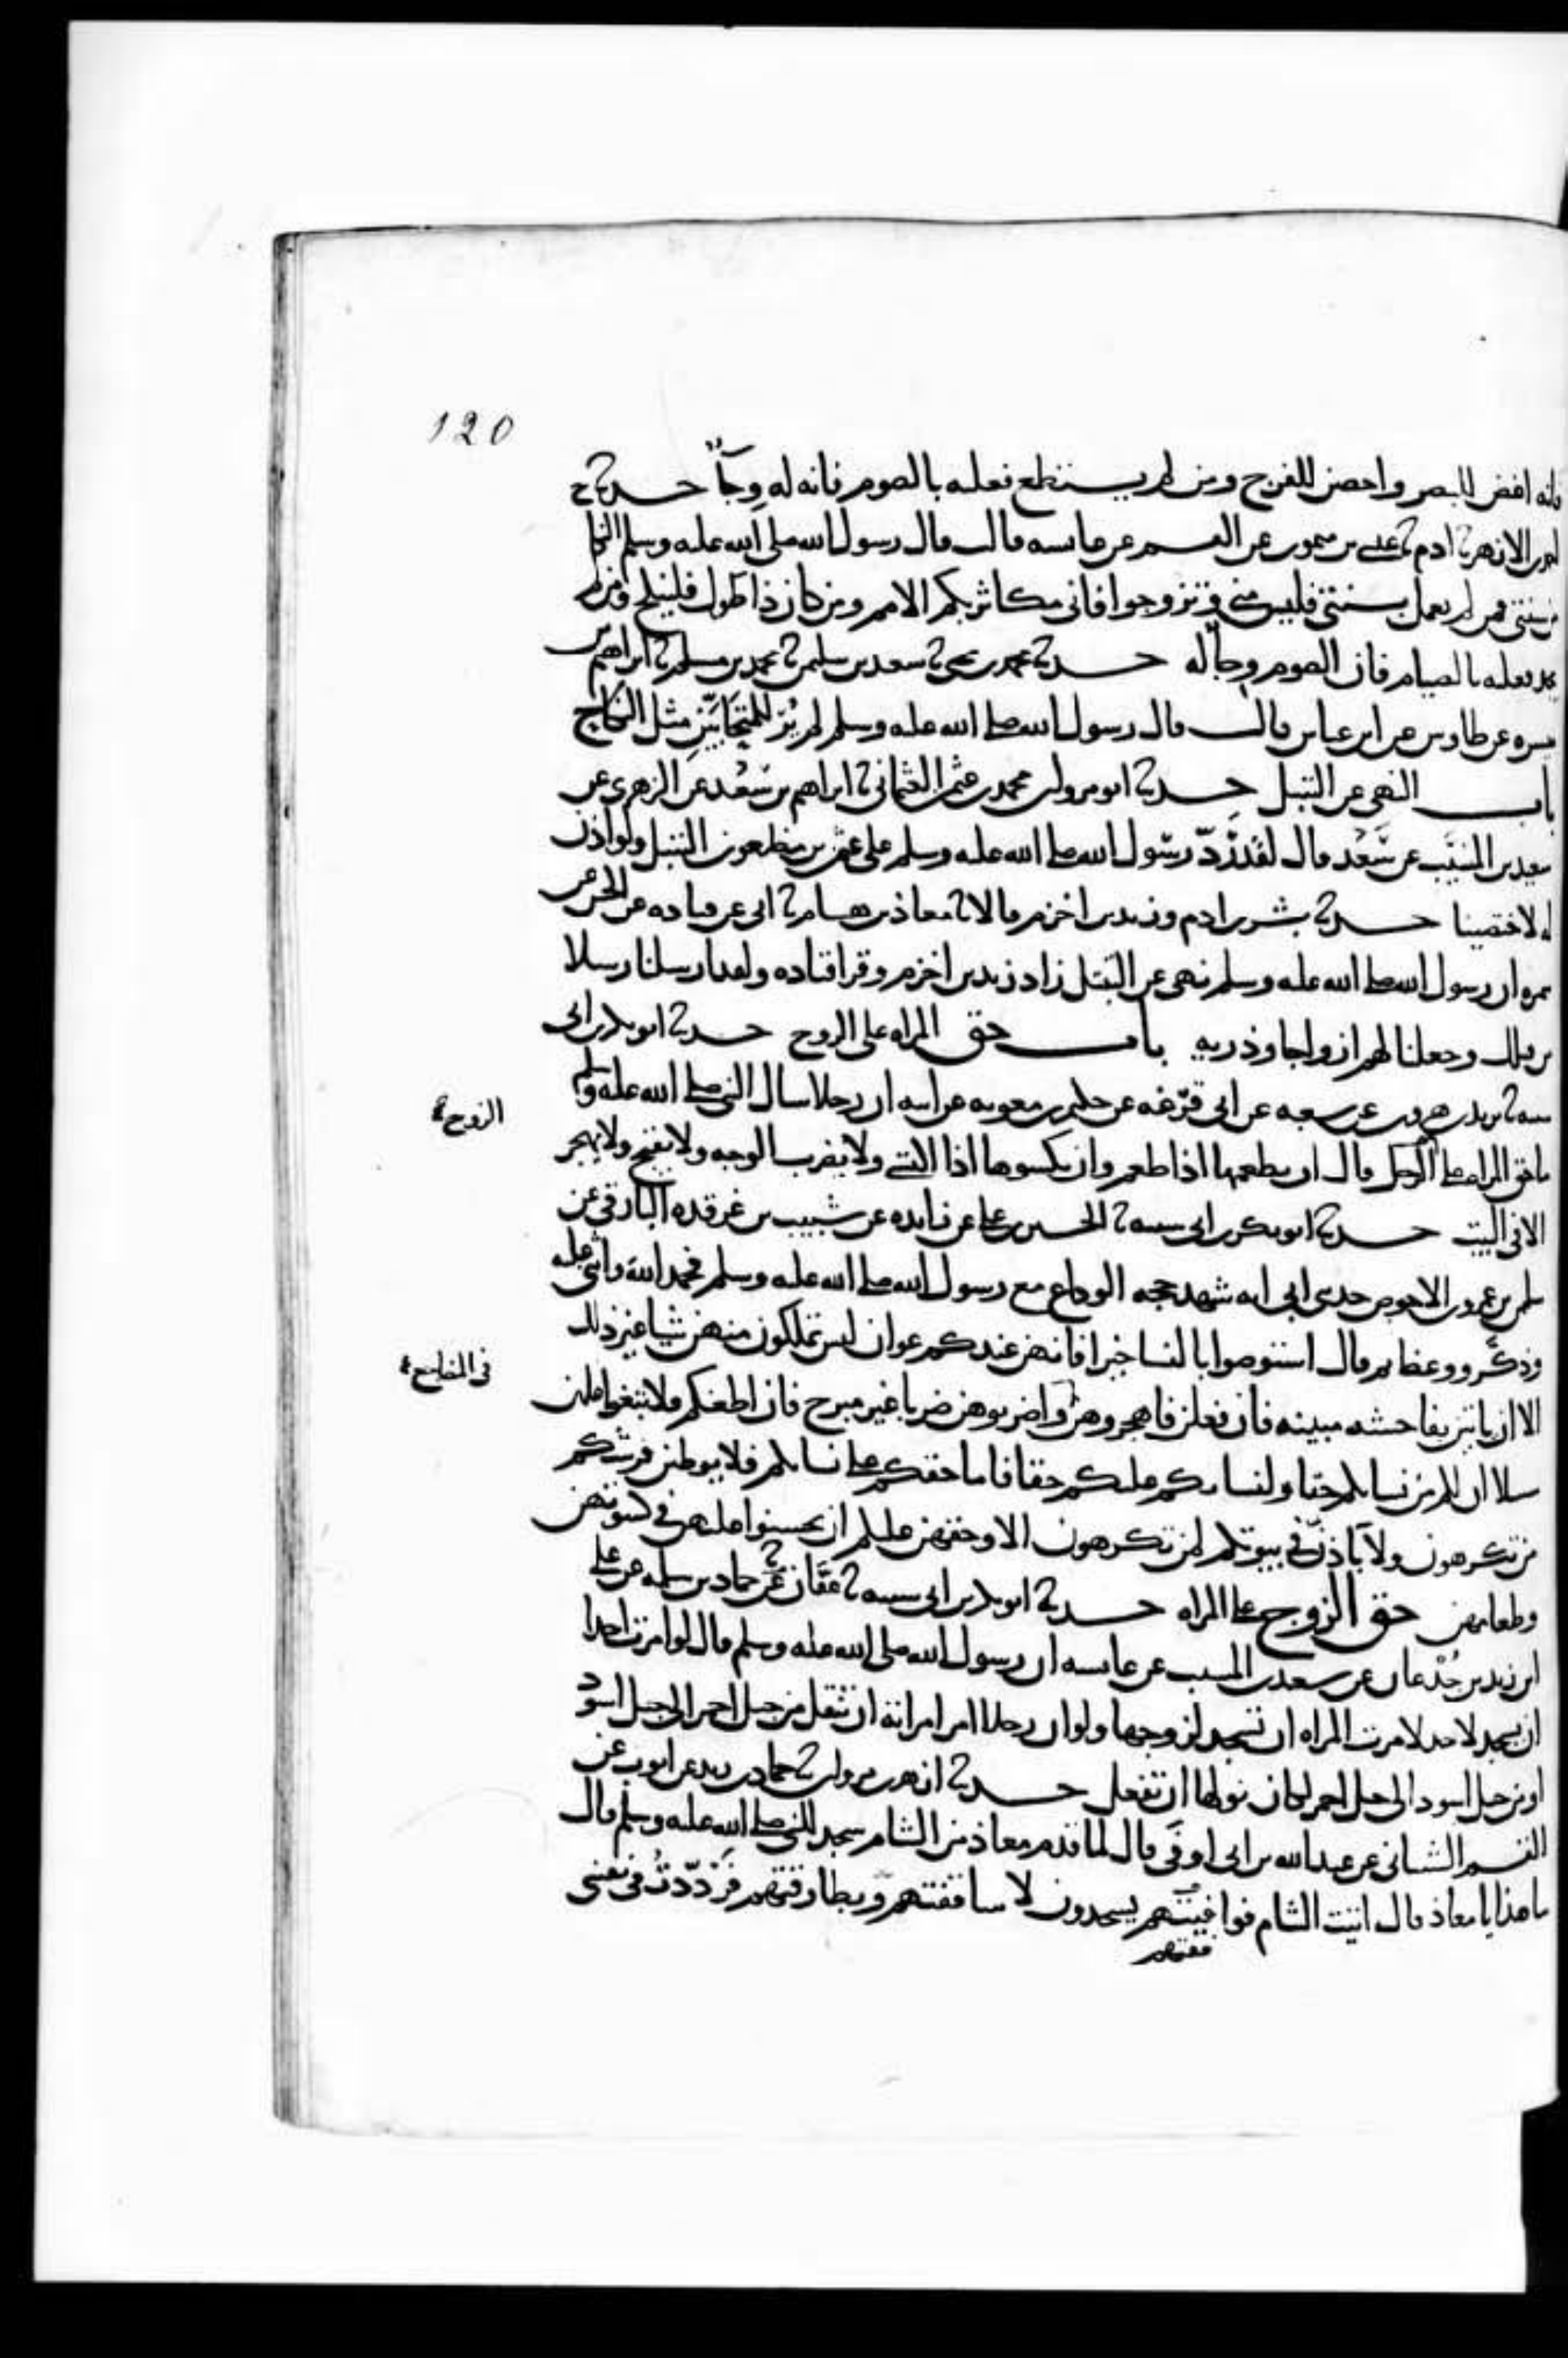 120
فانه اغض للبصر واحصن للفرج ومن لم يستطع فعليه بالصوم فانه له وجاء حدثنا
احمد بن الازهر ثنا ادم ثنا عيسى بن ميمون عن القسم عن عايشه قالت قال رسول الله صلى الله عليه وسلم النكاح
من سنتي فمن لم يعمل بسنتي فليس مني وتزوجوا فاني مكاثر بكم الامم ومن كان ذا طول فلينكح ومن لم
يجد فعليه بالصيام فان الصوم وجا له حدثنا محمد بن يحيى ثنا سعيد بن سليمن ثنا محمد بن مسلم ثنا ابراهيم بن
ميسره عن طاوس عن ابن عباس قال قال رسول الله صلى الله عليه وسلم لم ير للمتحابين مثل النكاح
باب النهي عن التبتل حدثنا ابو مروان محمد بن عثمن العثماني ثنا ابراهيم بن سعد عن الزهري عن
سعيد بن المسيب عن سعد قال لقد رد رسول الله صلى الله عليه وسلم على عثمن بن مظعون التبتل ولو اذن
له لاختصينا حدثنا بشر بن ادم وزيد بن اخزم قالا ثنا معاذ بن هشام ثنا ابي عن قتاده عن الحسن عن
سمره ان رسول الله صلى الله عليه وسلم نهى عن التبتل زاد زيد بن اخزم وقرا قتاده ولقد ارسلنا رسلا
من قبلك وجعلنا لهم ازواجا وذريه باب حق المراه على الزوج حدثنا ابو بكر بن ابي
شيبه ثنا يزيد بن هرون عن شعبه عن ابي قزعه عن حكيم بن معويه عن ابيه ان رجلا سال النبي صلى الله عليه وسلم
الزوج
ما حق المراه على الرجل قال ان يطعمها اذا طعم وان يكسوها اذا اكتسى ولا يضرب الوجه ولا يقبح ولا يهجر
الا في البيت حدثنا ابو بكر بن ابي شيبه ثنا الحسين بن علي عن زايده عن شبيب بن غرقده البارقي عن
سليمن بن عمرو بن الاحوص حدثني ابي انه شهد حجه الوداع مع رسول الله صلى الله عليه وسلم فحمد الله واثنى عليه
وذكر ووعظ ثم قال استوصوا بالنسا خيرا فانهن عندكم عوان ليس تملكون منهن شيا غير ذلك
في المضاجع
الا ان ياتين بفاحشه مبينه فان فعلن فاهجروهن واضربوهن ضربا غير مبرح فان اطعنكم فلا تبغوا عليهن
سبيلا ان لكم من نسايكم حقا ولنسايكم عليكم حقا فاما حقكم على نسايكم فلا يوطين فرشكم
من تكرهون ولا ياذن في بيوتكم لمن تكرهون الا وحقهن عليكم ان تحسنوا اليهن في كسوتهن
وطعامهن حق الزوج على المراه حدثنا ابو بكر بن ابي شيبه ثنا عفان ثنا حماد بن سلمه عن علي
ابن زيد بن جدعان عن سعيد بن المسيب عن عايشه ان رسول الله صلى الله عليه وسلم قال لو امرت احدا
ان يسجد لاحد لامرت المراه ان تسجد لزوجها ولو ان رجلا امر امراته ان تنقل من جبل احمر الى جبل اسود
او من جبل اسود الى جبل احمر لكان نولها ان تفعل حدثنا ازهر بن مروان ثنا حماد بن زيد عن ايوب عن
القسم الشيباني عن عبد الله بن ابي اوفى قال لما قدم معاذ من الشام سجد للنبي صلى الله عليه وسلم قال
ما هذا يا معاذ قال اتيت الشام فوافيتهم يسجدون لاساقفتهم وبطارقتهم فرددت في نفسي